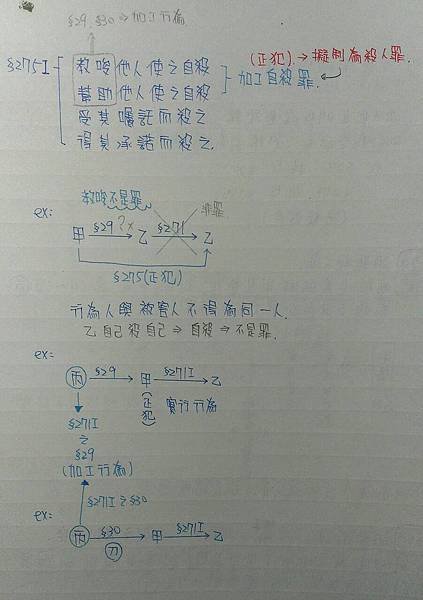 §29, §30 ⇒ 加工行為
(正犯) → 擬制為殺人罪.
§275I
教唆他人使之自殺
幫助他人使之自殺
加工自殺罪.
受其囑託而殺之
得其承諾而殺之.
教唆不是罪
非罪
ex:
甲 §29?x → 乙 §271 → 乙
§275(正犯)
行為人與被害人不得為同一人.
乙自己殺自己 ⇒ 自殺 ⇒ 不是罪.
ex:
丙 §29 → 甲 §271I → 乙
(正犯) 實行行為
§271I
之
§29
(加工行為)
§271I之§30
ex:
丙 §30 → 甲 §271I → 乙
刀